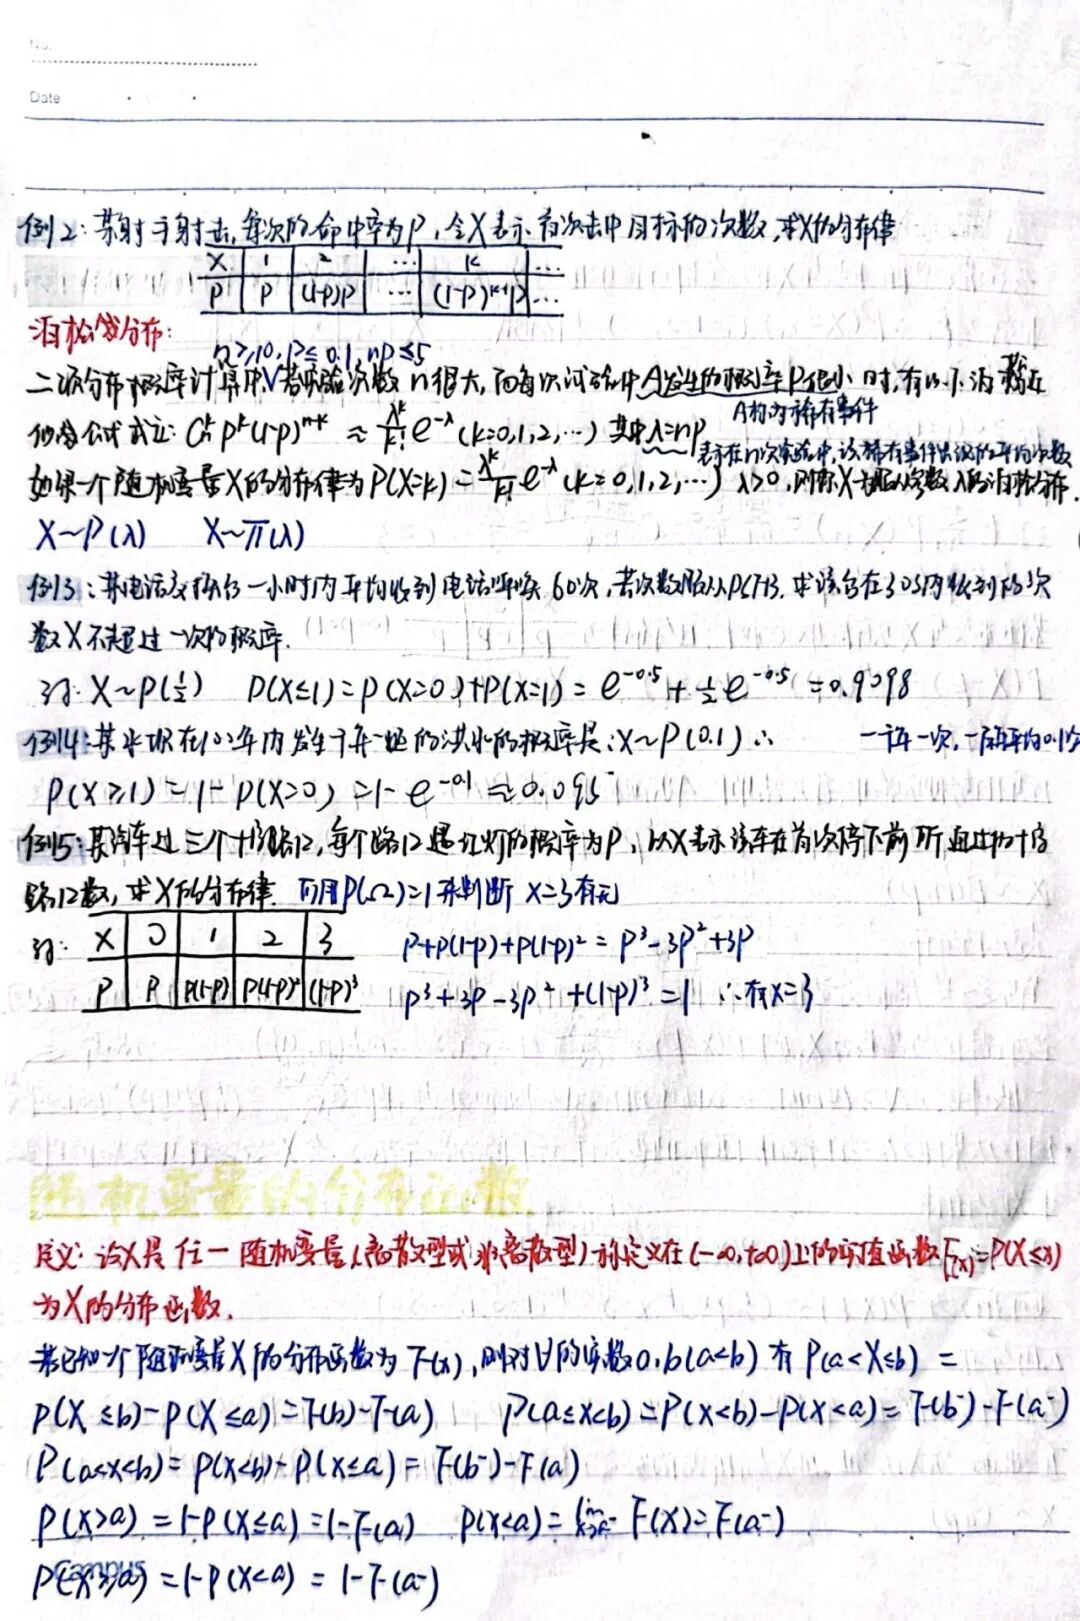 No.
Date
例2: 某射手射击,每次的命中率为P,令X表示首次击中目标的次数,求X的分布律
X 1 2 … k …
P P (1-P)P … (1-P)^{k-1}P …
泊松分布:
n≥10, P≤0.1, np≤5
二项分布概率计算中∨若实验次数n很大,而每次试验中A发生的概率P很小时,有以下泊松近
A称为稀有事件
似公式成立: C_n^k P^k(1-P)^{n-k} ≈ \frac{λ^k}{k!} e^{-λ} (k=0,1,2,…) 其中λ=np
表示在n次实验中,该稀有事件出现的平均次数
如果一个随机变量X的分布律为P(X=k)=\frac{λ^k}{k!} e^{-λ} (k=0,1,2,…) λ>0,则称X服从参数λ的泊松分布.
X~P(λ) X~π(λ)
例3: 某电话交换台一小时内平均收到电话呼唤60次,若次数服从P(λ),求该台在30s内收到的次
数X不超过一次的概率.
解: X~P(½) P(X≤1)=P(X=0)+P(X=1)=e^{-0.5}+½e^{-0.5}=0.9098
例4: 某水坝在100年内发生千年一遇的洪水的概率是: X~P(0.1) ∴ 千年一次,一百年平均0.1次
P(X≥1)=1-P(X=0)=1-e^{-0.1}≈0.095
例5: 某汽车过三个十字路口,每个路口遇红灯的概率为P,以X表示该车在首次停下前所通过的十字
路口数,求X的分布律. 可用P(Ω)=1来判断 X=3有无
解: X 0 1 2 3 P+P(1-P)+P(1-P)²=P³-3P²+3P
P P P(1-P) P(1-P)² (1-P)³ P³+3P-3P²+(1-P)³=1 ∴有X=3
随机变量的分布函数
定义: 设X是任一随机变量(离散型或非离散型)称定义在(-∞,+∞)上的实值函数F(x)=P(X≤x)
为X的分布函数.
若已知一个随机变量X的分布函数为F(x),则对∀的实数a,b(a<b)有P(a<X≤b)=
P(X≤b)-P(X≤a)=F(b)-F(a) P(a≤X<b)=P(X<b)-P(X<a)=F(b⁻)-F(a⁻)
P(a<X<b)=P(X<b)-P(X≤a)=F(b⁻)-F(a)
P(X>a)=1-P(X≤a)=1-F(a) P(X<a)=lim_{x→a⁻} F(X)=F(a⁻)
P(X≥a)=1-P(X<a)=1-F(a⁻)
Campus